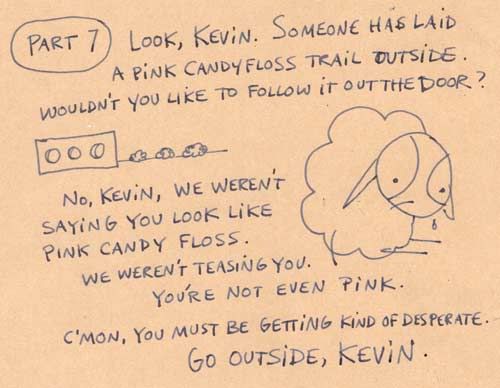 PART 7
LOOK, KEVIN. SOMEONE HAS LAID
A PINK CANDYFLOSS TRAIL OUTSIDE.
WOULDN'T YOU LIKE TO FOLLOW IT OUT THE DOOR?
NO, KEVIN, WE WEREN'T
SAYING YOU LOOK LIKE
PINK CANDY FLOSS.
WE WEREN'T TEASING YOU.
YOU'RE NOT EVEN PINK.
C'MON, YOU MUST BE GETTING KIND OF DESPERATE.
GO OUTSIDE, KEVIN.